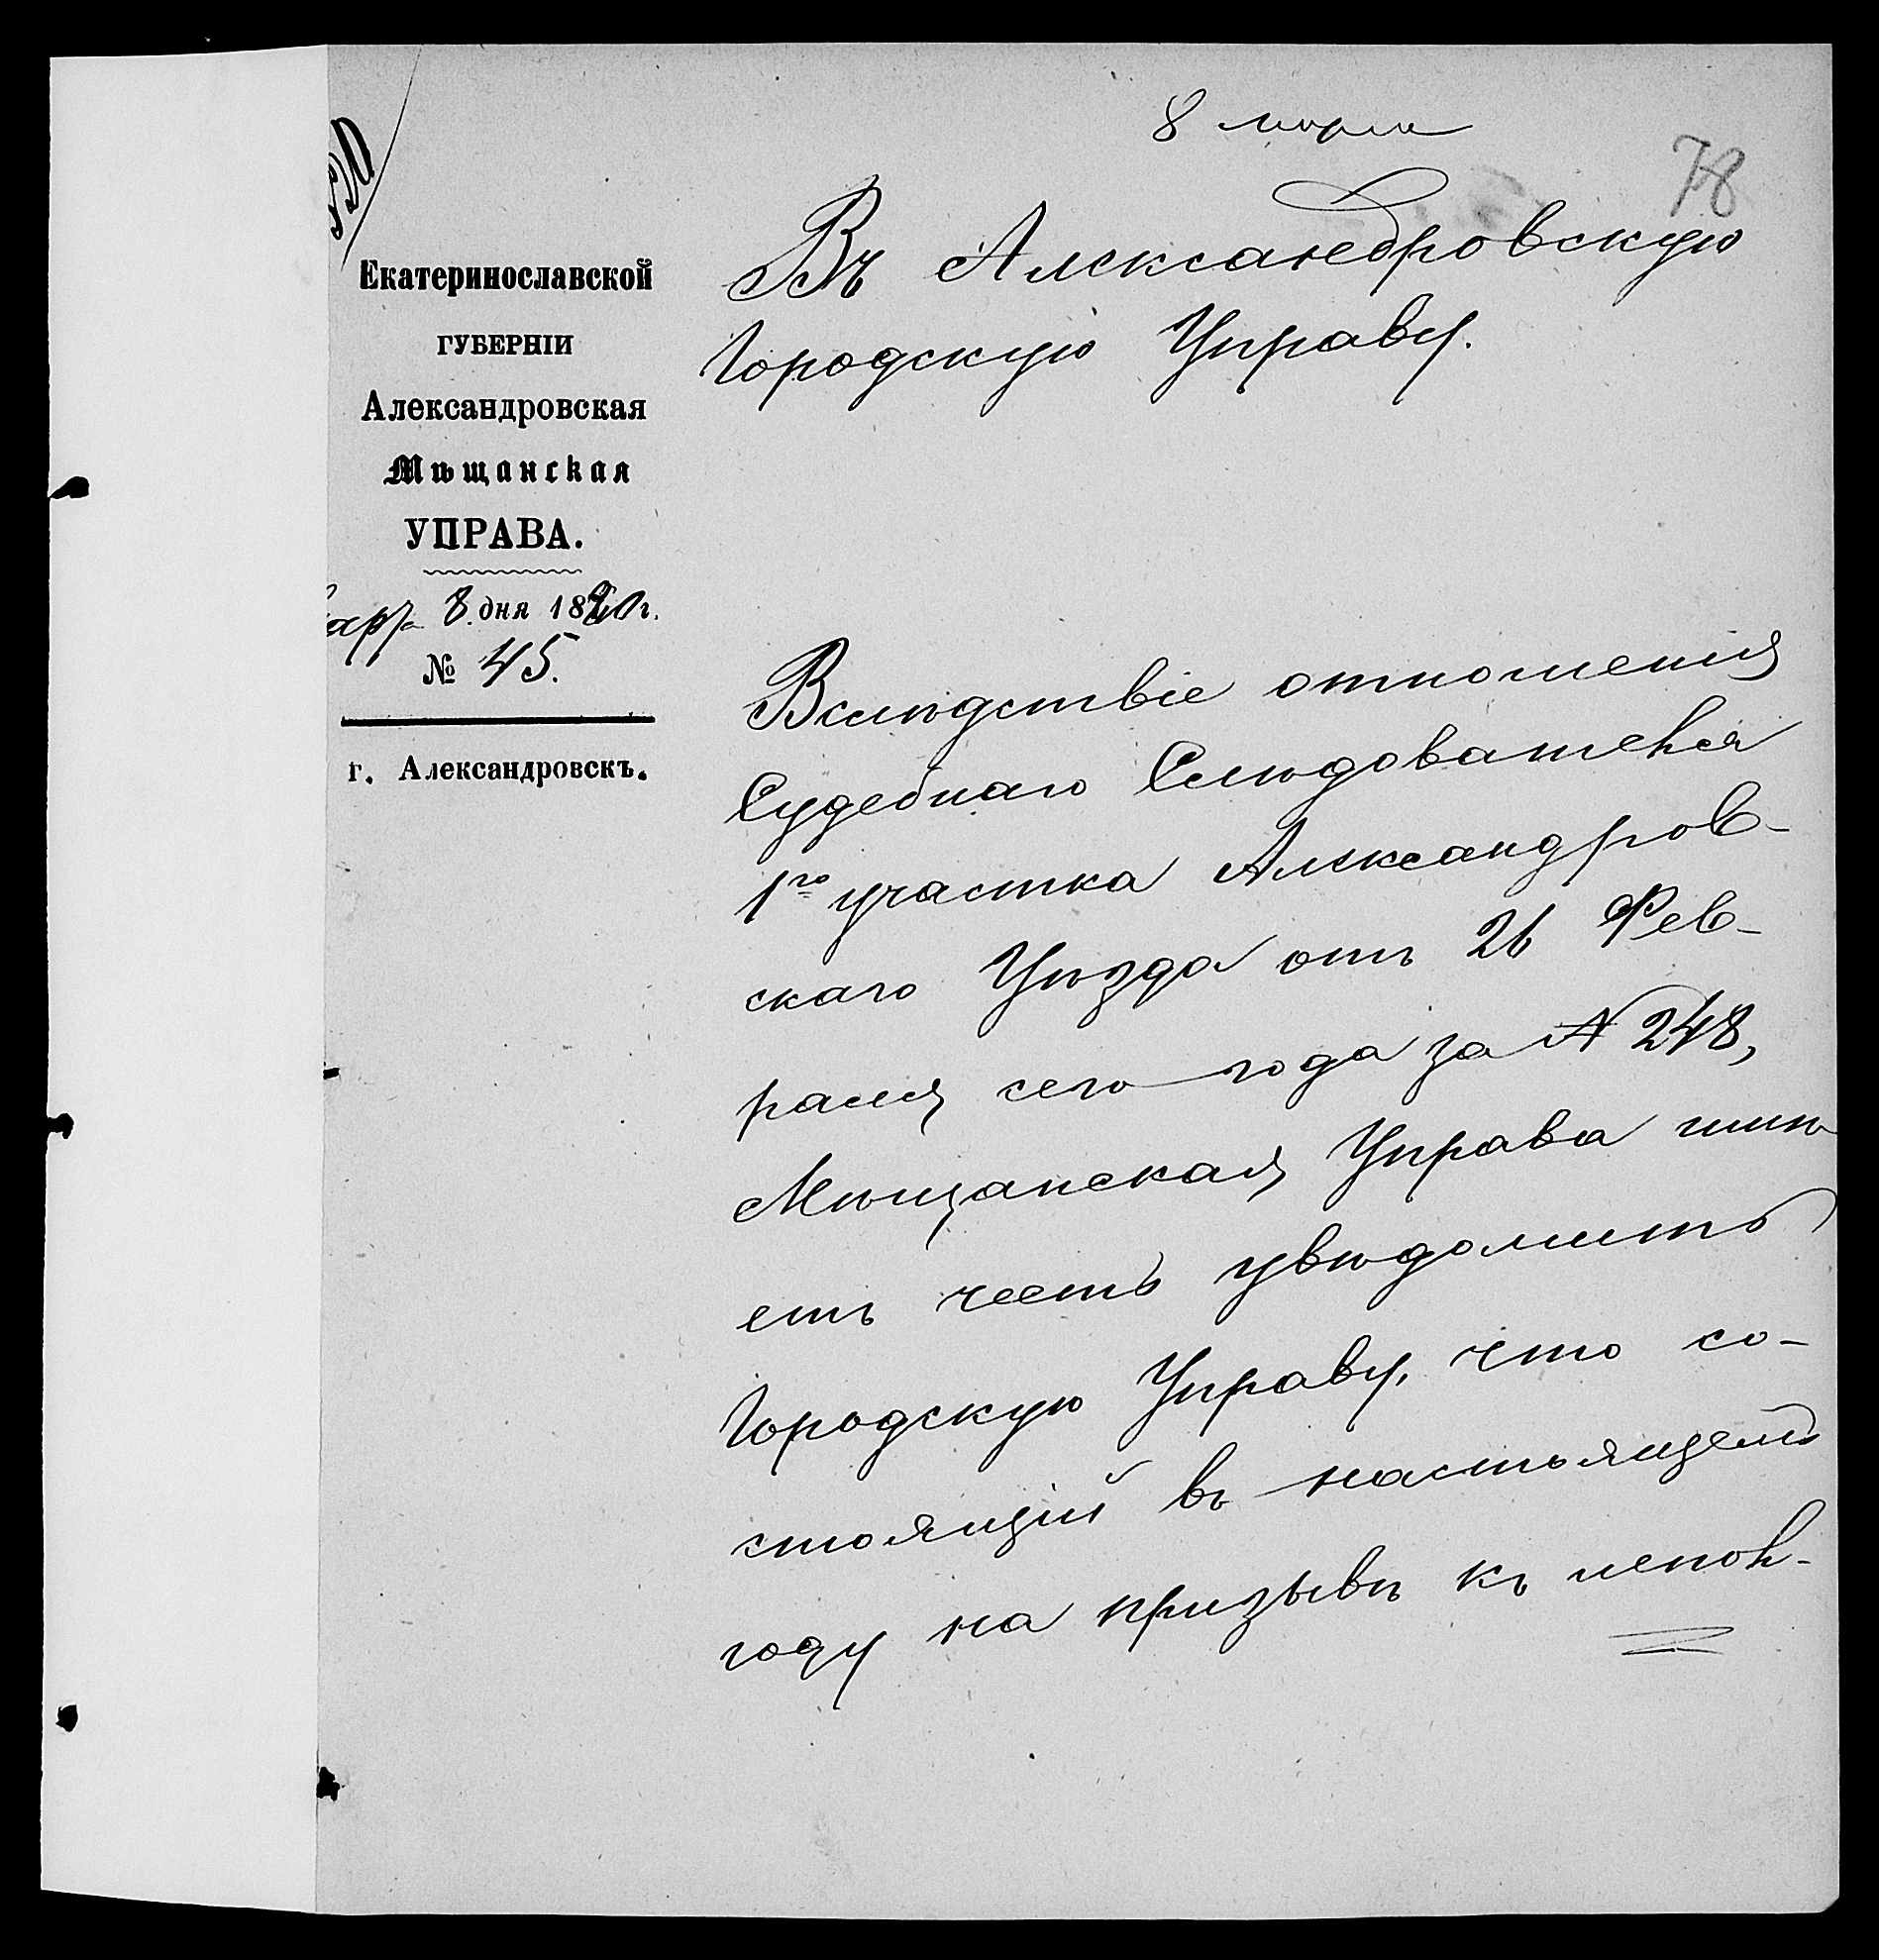 8 марта
78
Въ Александровскую
Городскую Управу.
Екатеринославской
ГУБЕРНІИ
Александровская
Мѣщанская
УПРАВА.
Марта 8 дня 1890 г.
№ 45.
г. Александровскъ.
Вслѣдствіе отношенія
Судебнаго Слѣдователя
1го участка Александров-
скаго Уѣзда отъ 26 Фев-
раля сего года за № 248,
Мѣщанская Управа имѣ
етъ честь увѣдомить
Городскую Управу, что со-
стоящій въ настоящемъ
году на призывѣ къ испол-